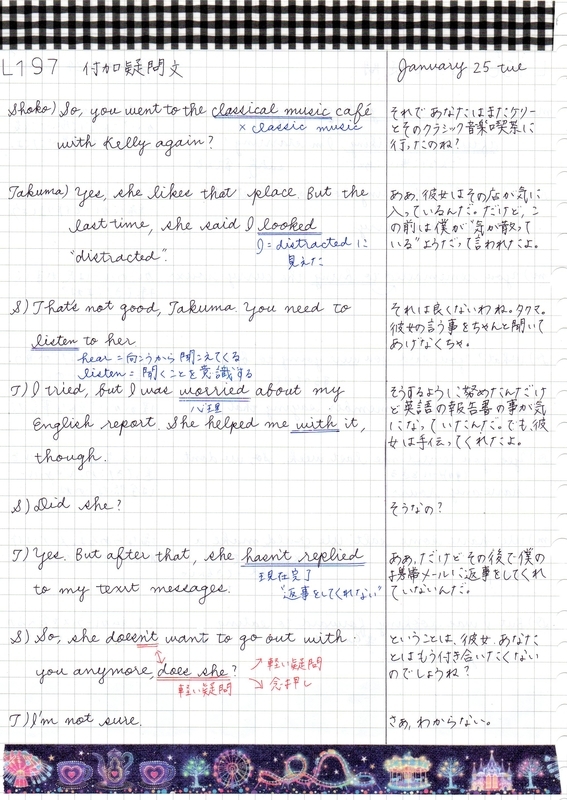 L197 付加疑問文
January 25 tue
Shoko) So, you went to the classical music café
× classic music
with Kelly again?
それで あなたはまたケリー
とそのクラシック音楽喫茶に
行ったのね?
Takuma) Yes, she likes that place. But the
last time, she said I looked
"distracted".
I = distracted に
見えた
ああ、彼女はその店が気に
入っているんだ。だけど、こ
の前は僕が"気が散って
いる"ようだって言われたよ。
S) That's not good, Takuma. You need to
listen to her
hear = 向こうから聞こえてくる
listen = 聞くことを意識する
それは良くないわね。タクマ。
彼女の言う事をちゃんと聞いて
あげなくちゃ。
T) I tried, but I was worried about my
心理
English report. She helped me with it,
though.
そうするように努めたんだけ
ど英語の報告書の事が気
になっていたんだ。でも、彼
女は手伝ってくれたよ。
S) Did she?
そうなの?
T) Yes. But after that, she hasn't replied
現在完了
to my text messages.
"返事をしてくれない"
ああ、だけど その後で僕の
携帯メールに返事をしてくれ
ていないんだ。
S) So, she doesn't want to go out with
you anymore, does she?
軽い疑問
↗ 軽い疑問
↘ 念押し
ということは、彼女、あなた
とはもう付き合いたくない
のでしょうね?
T) I'm not sure.
さあ、わからない。